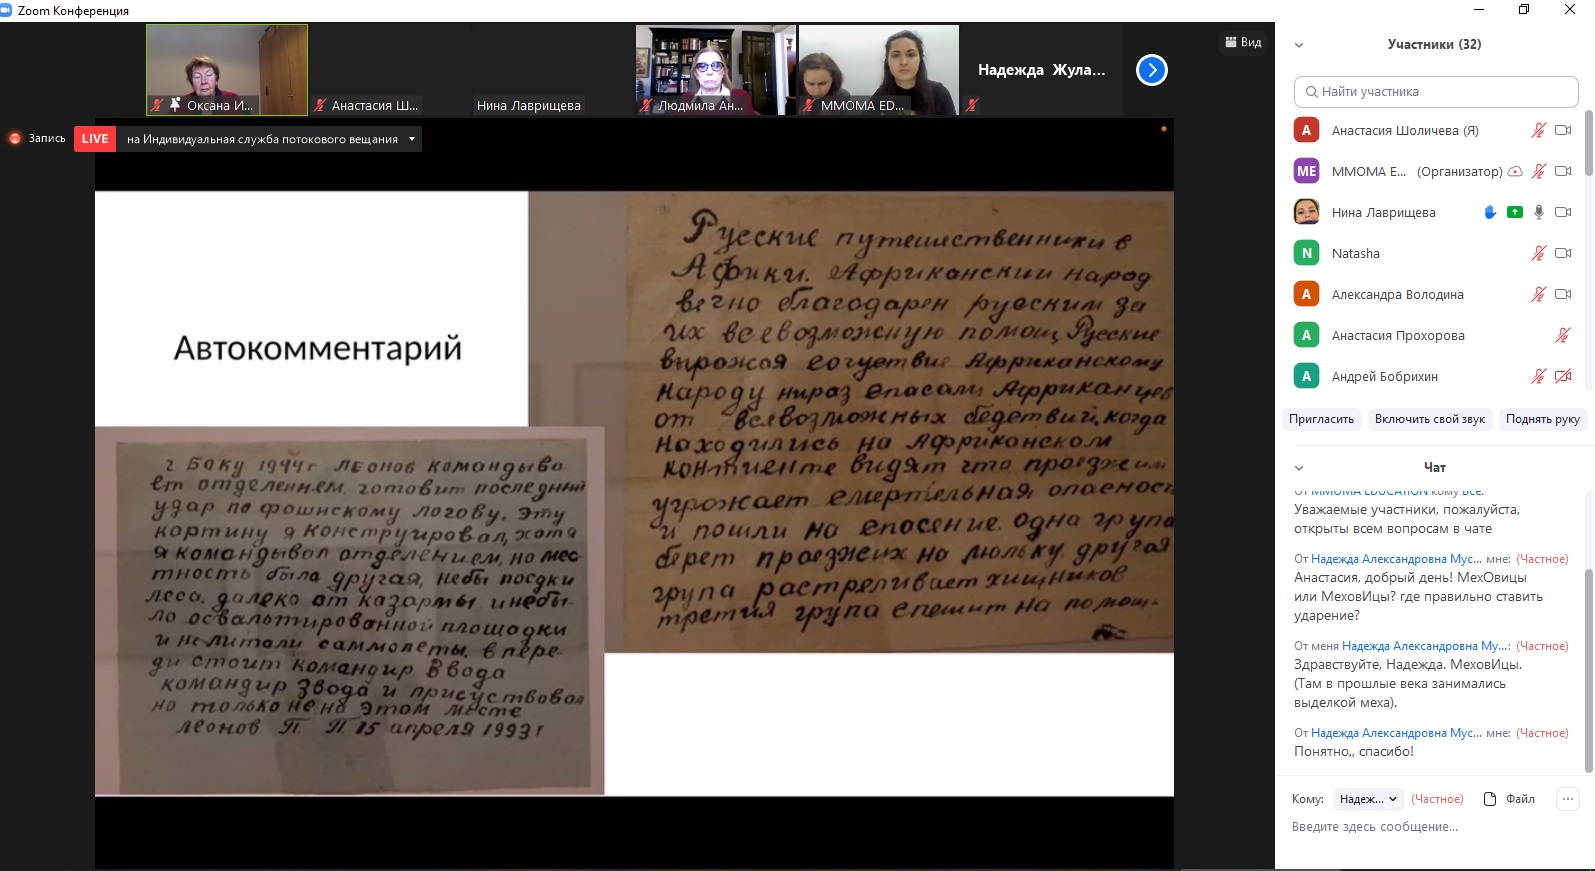 Zoom Конференция
Оксана И...
Анастасия Ш...
Нина Лаврищева
Людмила Ан...
MMOMA ED...
Надежда Жула...
Вид
Запись
LIVE
на Индивидуальная служба потокового вещания
Автокомментарий
Русские путешественники в
Африки. Африканский народ
вечно благодарен русским за
их всевозможную помощ, Русские
вырожая согуствие Африканскому
народу нираз спасали Африканцев
от всевозможных бедствий, когда
находились на Африканском
контиенте видят что проезжим
угрожает смертельная опасност
и пошли на спосение. одна група
берет проезжих на люльку, другая
група растреливает хищников
третия група спешит на помощ-
г Баку 1944 г Леонов командыва-
ет отделением, готовит последный
удар по фошискому логову. Эту
картину я конструировал, хотя
я командывал отделением, но мес-
тность была другая, небы посдки
леса. далеко от казармы и небы-
ло освальтированной площадки
и нелитали саммолеты, в пере-
ди стоит командир Ввода
командир Звода и присуствовал
но только не на этом месте
Леонов П. П. 15 апреля 1993 г
Участники (32)
Найти участника
А Анастасия Шоличева (Я)
ME MMOMA E... (Организатор)
Нина Лаврищева
N Natasha
А Александра Володина
А Анастасия Прохорова
А Андрей Бобрихин
Пригласить Включить свой звук Поднять руку
Чат
От MMOMA EDUCATION кому Все:
Уважаемые участники, пожалуйста,
открыты всем вопросам в чате
От Надежда Александровна Мус... мне: (Частное)
Анастасия, добрый день! МехОвицы
или МеховИцы? где правильно ставить
ударение?
От меня Надежда Александровна Му...: (Частное)
Здравствуйте, Надежда. МеховИцы.
(Там в прошлые века занимались
выделкой меха).
От Надежда Александровна Мус... мне: (Частное)
Понятно,, спасибо!
Кому: Надеж... (Частное) Файл ...
Введите здесь сообщение...